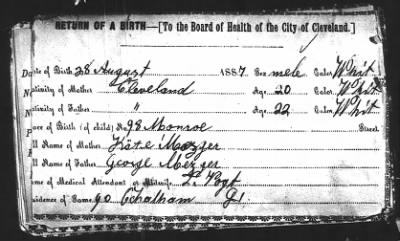 RETURN OF A BIRTH—[To the Board of Health of the City of Cleveland.]
Date of Birth 28 August 1887 Sex male Color Whit
Nativity of Mother Cleveland Age, 20 Color, Whit
Nativity of Father " Age, 22 Color, Whit
Place of Birth (of child) No 98 Monroe Street
ll Name of Mother Kate Mezger
ll Name of Father George Mezger
ame of Medical Attendant or Midwife, Dr Vogt
sidence of Same, 90 Chatham St